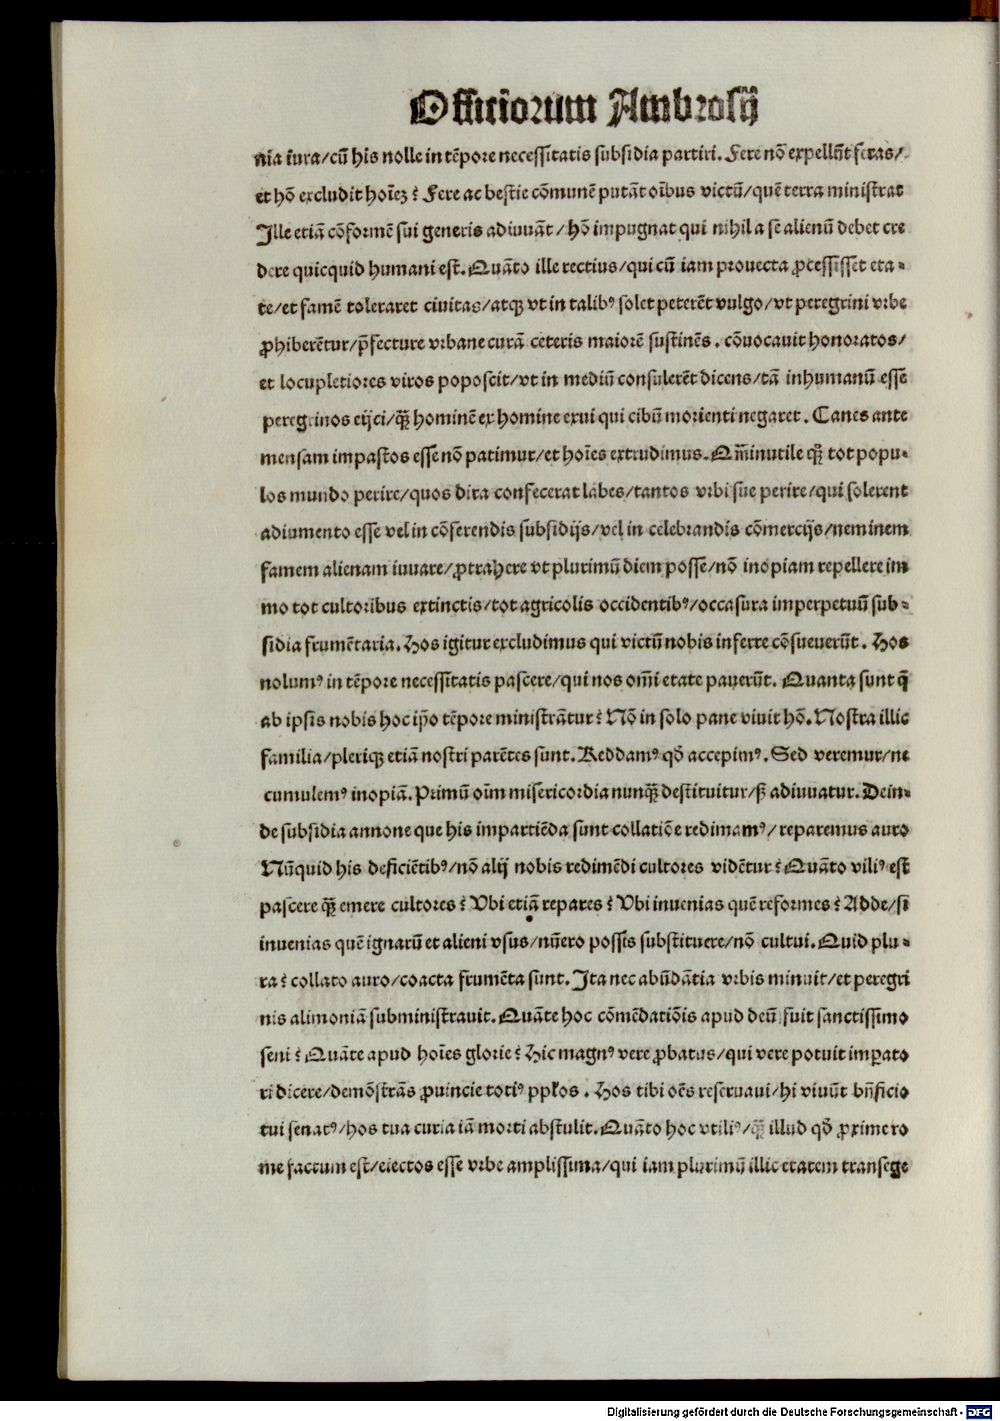 Officiorum Ambrosij
nia iura/cũ his nolle in tẽpore necessitatis subsidia partiri. Fere nõ expellũt feras/
et hõ excludit hoĩez? Fere ac bestie cõmunẽ putãt oĩbus victũ/quẽ terra ministrat
Ille etiã cõformẽ sui generis adiuuãt/hõ impugnat qui nihil a se alienũ debet cre
dere quicquid humani est. Quãto ille rectius/qui cũ iam prouecta ꝓcessisset eta-
te/et famẽ toleraret ciuitas/atqꝫ vt in talibꝰ solet peterẽt vulgo/vt peregrini vrbe
ꝓhiberẽtur/p̃fecture vrbane curã ceteris maiorẽ sustinẽs. cõuocauit honoratos/
et locupletiores viros poposcit/vt in mediũ consulerẽt dicens/tã inhumanũ esse
peregrinos eijci/qꝫ̃ hominẽ ex homine exui qui cibũ morienti negaret. Canes ante
mensam impastos esse nõ patimur/et hoĩes extrudimus. Qm̃ inutile qꝫ̃ tot popu-
los mundo perire/quos dira confecerat labes/tantos vrbi sue perire/qui solerent
adiumento esse vel in cõferendis subsidijs/vel in celebrandis cõmercijs/neminem
famem alienam iuuare/ꝓtrahere vt plurimũ diem posse/nõ inopiam repellere im
mo tot cultoribus extinctis/tot agricolis occidentibꝰ/occasura imperpetuũ sub-
sidia frumẽtaria. Hos igitur excludimus qui victũ nobis inferre cõsueuerũt. Hos
nolumꝰ in tẽpore necessitatis pascere/qui nos om̃i etate pauerũt. Quanta sunt q̃
ab ipsis nobis hoc ip̃o tẽpore ministrãtur? Nõ in solo pane viuit hõ. Nostra illic
familia/pleriqꝫ etiã nostri parẽtes sunt. Reddamꝰ qð accepimꝰ. Sed veremur/ne
cumulemꝰ inopiã. Primũ oĩm misericordia nunqꝫ̃ destituitur/ꝭ adiuuatur. Dein-
de subsidia annone que his impartiẽda sunt collatiõe redimamꝰ/reparemus auro
Nũquid his deficiẽtibꝰ/nõ alij nobis redimẽdi cultores vidẽtur? Quãto viliꝰ est
pascere qꝫ̃ emere cultores? Vbi etiã repares? Vbi inuenias quẽ reformes? Adde/si
inuenias quẽ ignarũ et alieni vsus/nũero possis substituere/nõ cultui. Quid plu-
ra? collato auro/coacta frumẽta sunt. Ita nec abũdãtia vrbis minuit/et peregri
nis alimoniã subministrauit. Quãte hoc cõmẽdatiõis apud deũ fuit sanctissimo
seni? Quãte apud hoĩes glorie? Hic magnꝰ vere ꝓbatus/qui vere potuit imꝑato
ri dicere/demõstrãs ꝓuincie totiꝰ pp̃los. Hos tibi oẽs reseruaui/hi viuũt bñficio
tui senatꝰ/hos tua curia iã morti abstulit. Quãto hoc vtiliꝰ/qꝫ̃ illud qð ꝓxime ro
me factum est/eiectos esse vrbe amplissima/qui iam plurimũ illic etatem transege
Digitalisierung gefördert durch die Deutsche Forschungsgemeinschaft - DFG